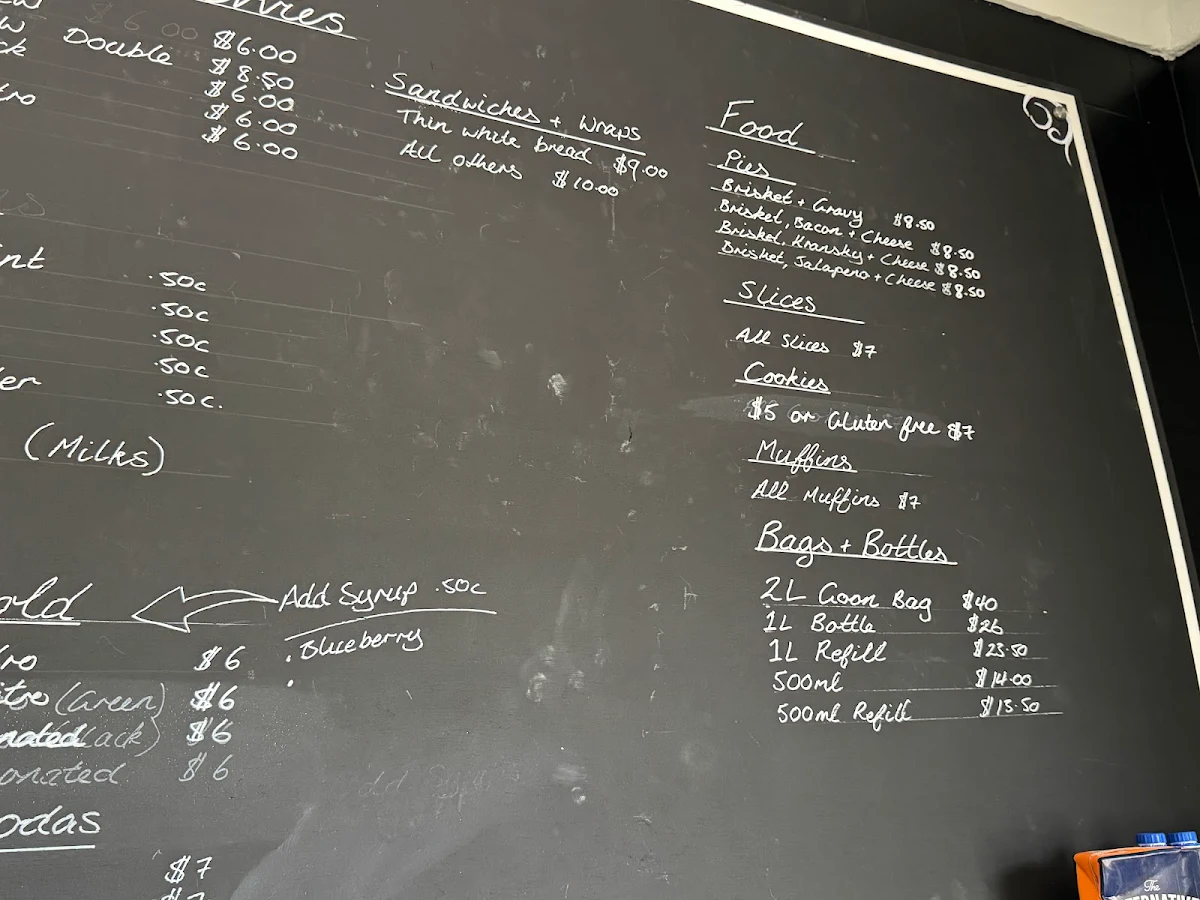 $6.00
Double $8.50
$6.00
$6.00
$6.00
.50c
.50c
.50c
.50c
.50c.
(Milks)
Add Syrup .50c
. Blueberry
.
$6
(Green) $6
$6
$6
$7
Sandwiches + Wraps
Thin white bread $9.00
All others $10.00
Food
Pies
Brisket + Gravy $8.50
Brisket, Bacon + Cheese $8.50
Brisket, Kransky + Cheese $8.50
Brisket, Jalapeno + Cheese $8.50
Slices
All Slices $7
Cookies
$5 or Gluten free $7
Muffins
All Muffins $7
Bags + Bottles
2L Goon Bag $40
1L Bottle $26
1L Refill $25.50
500ml $14.00
500ml Refill $13.50
The